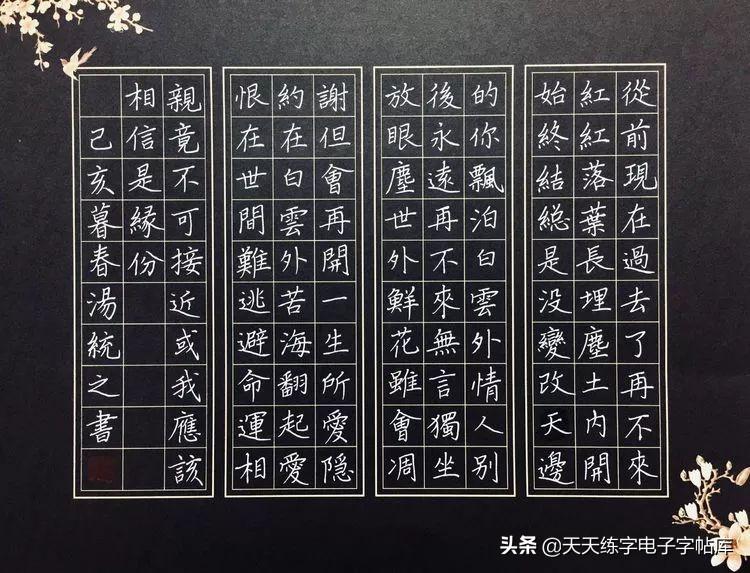 從前現在過去了再不來
紅紅落葉長埋塵土内開
始終結緫是没變改天邊
的你飄泊白雲外情人别
後永遠再不來無言獨坐
放眼塵世外鮮花雖會凋
謝但會再開一生所愛隐
約在白雲外苦海翻起愛
恨在世間難逃避命運相
親竟不可接近或我應該
相信是緣份
己亥暮春湯統之書
头条 @天天练字电子字帖库